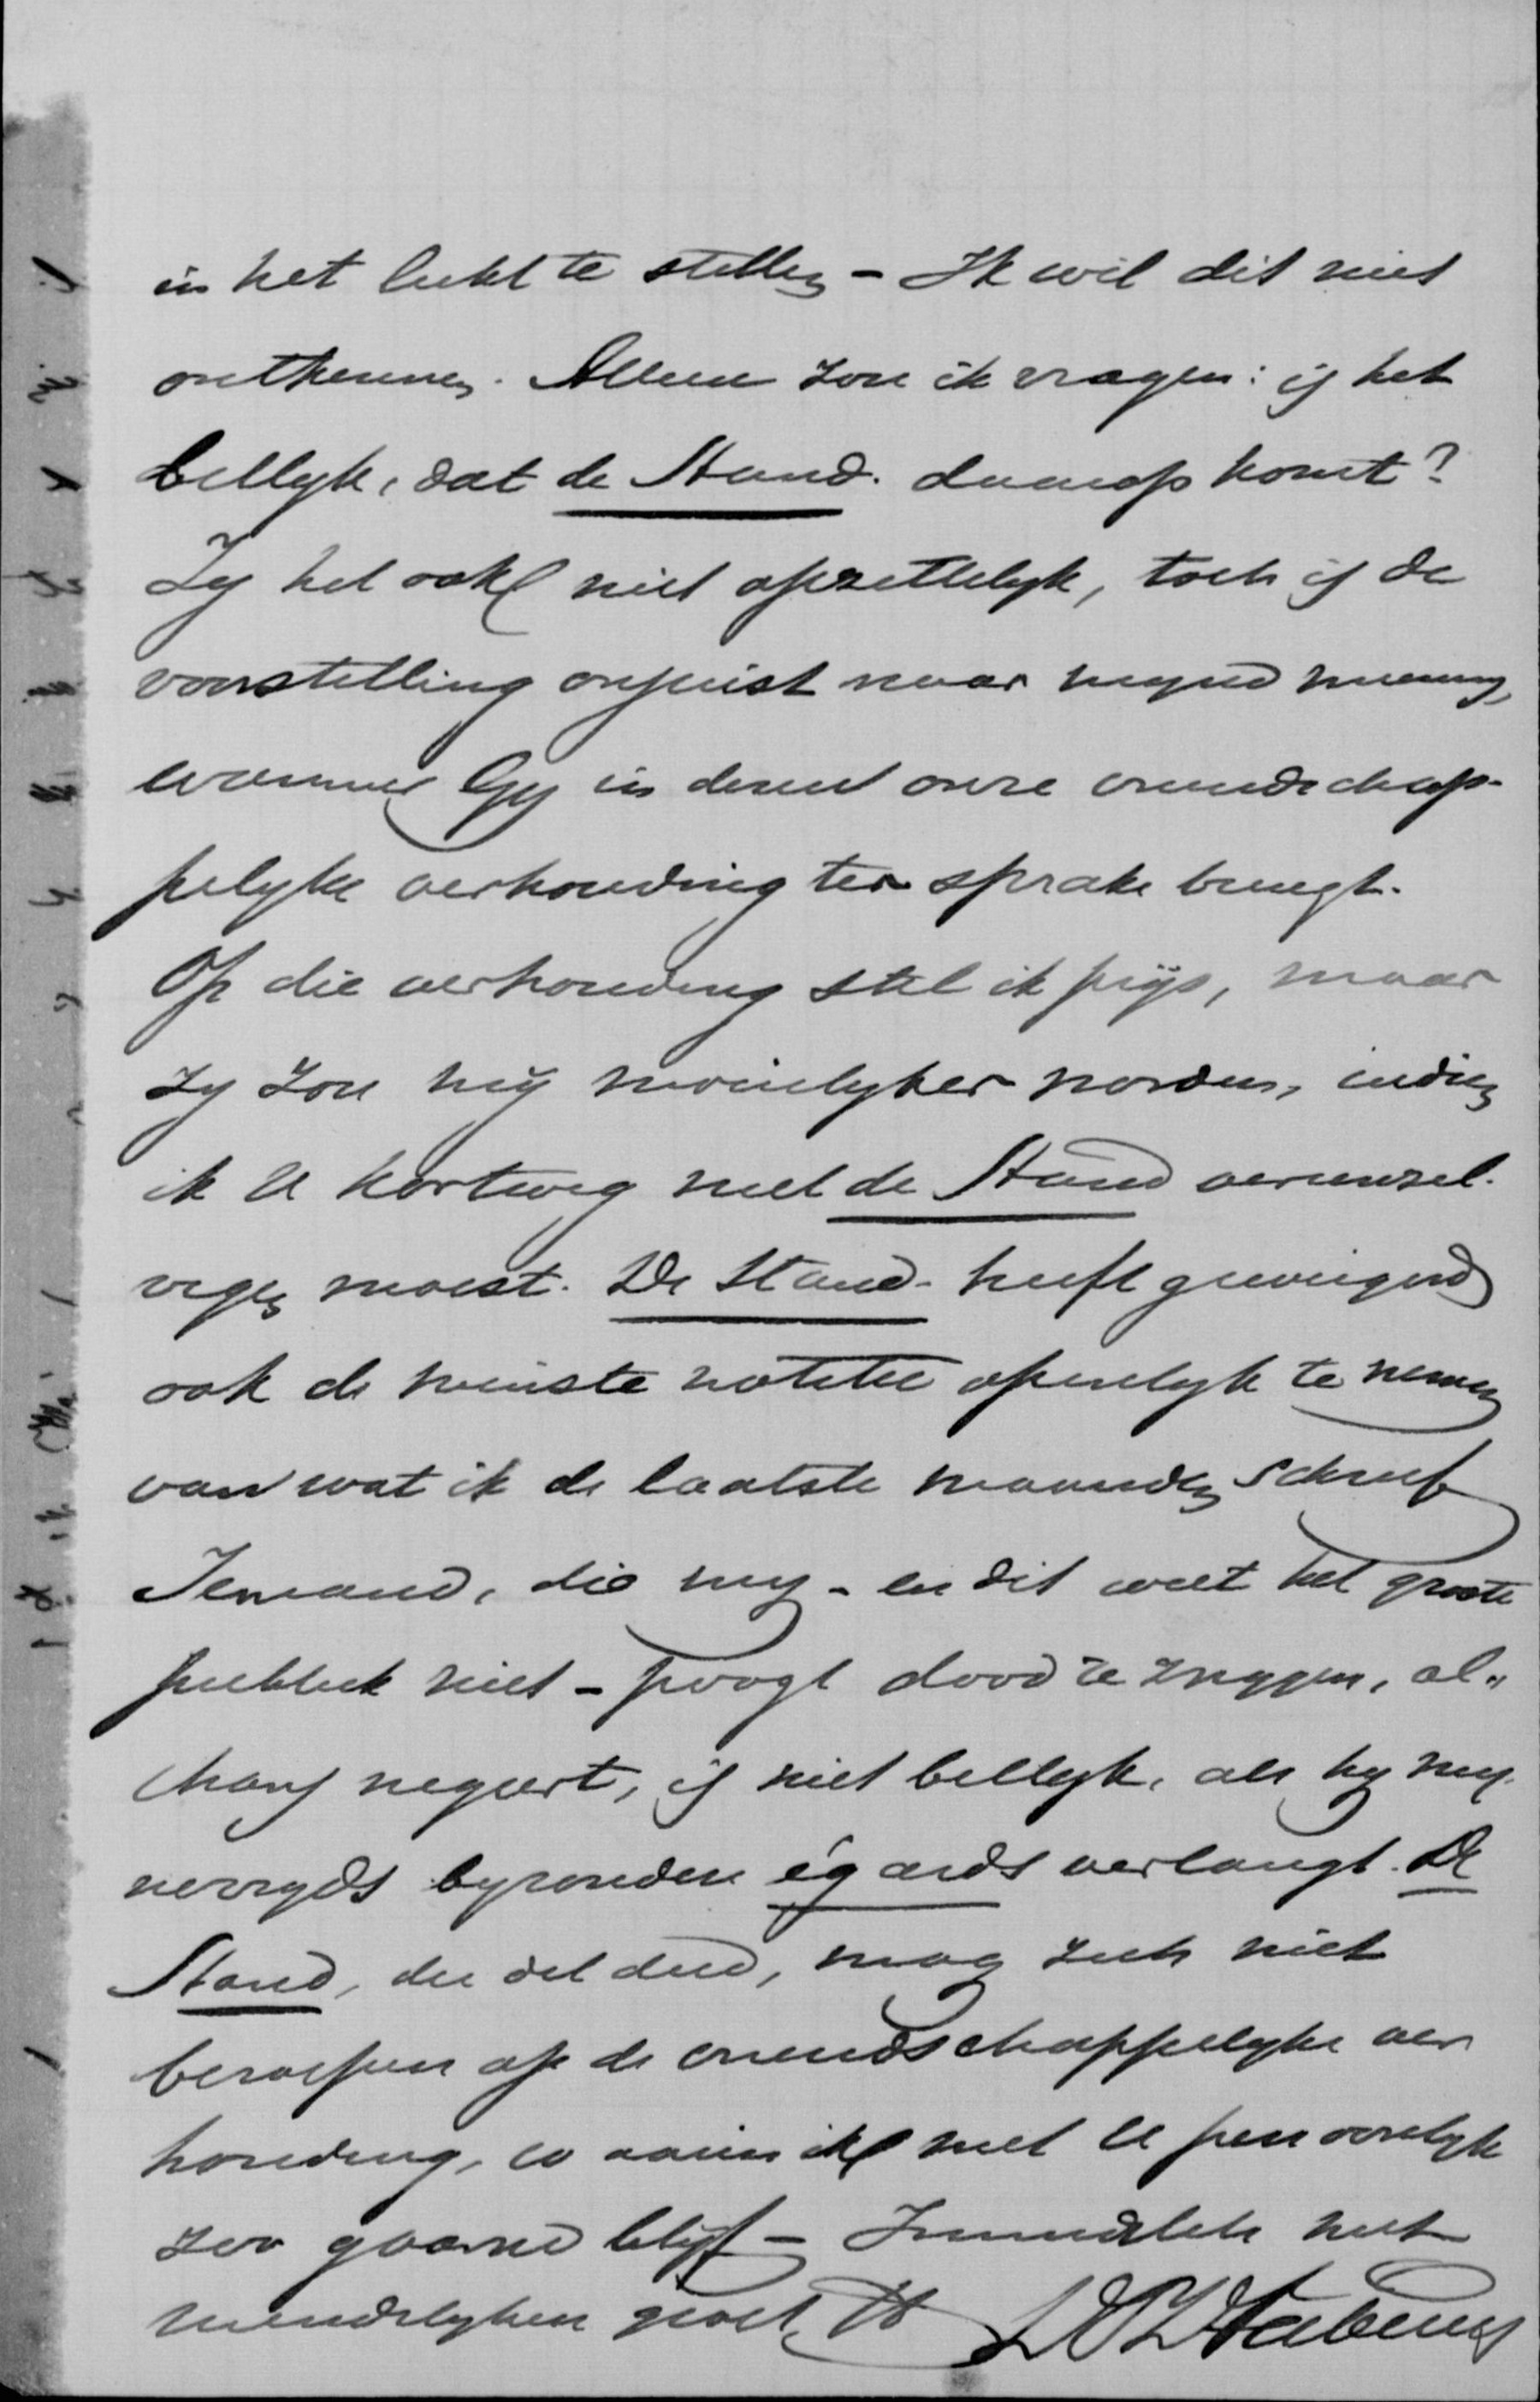 in het licht te stellen - Ik wil dit niet
ontkennen. Alleen zou ik vragen: is het
billyk, dat de Stand. daarop komt?
Zy het ook niet opzettelyk, toch is de
voorstelling onjuist naar myne meening,
wanneer Gy in dezen onze vriendschap-
pelyke verhouding ter sprake brengt.
Op die verhouding stel ik prijs, maar
zy zou mij moeielyker worden, indien
ik U kortweg met de Stand vereenzel-
vigen moest. De Stand. heeft geweigerd
ook de minste notitie openlyk te nemen
van wat ik de laatste maanden schreef
Iemand, die my - en dit weet het groote
publiek niet - poogt dood te zwygen, al-
thans negeert, is niet billyk, als hy my-
nerzyds byzondere égards verlangt. De
Stand, die dit deed, mag zich niet
beroepen op de vriendschappelyke ver
houding, waarin ik met U persoonlyk
zoo gaarne blijf - Inmiddels met
vriendelyken groet, tt